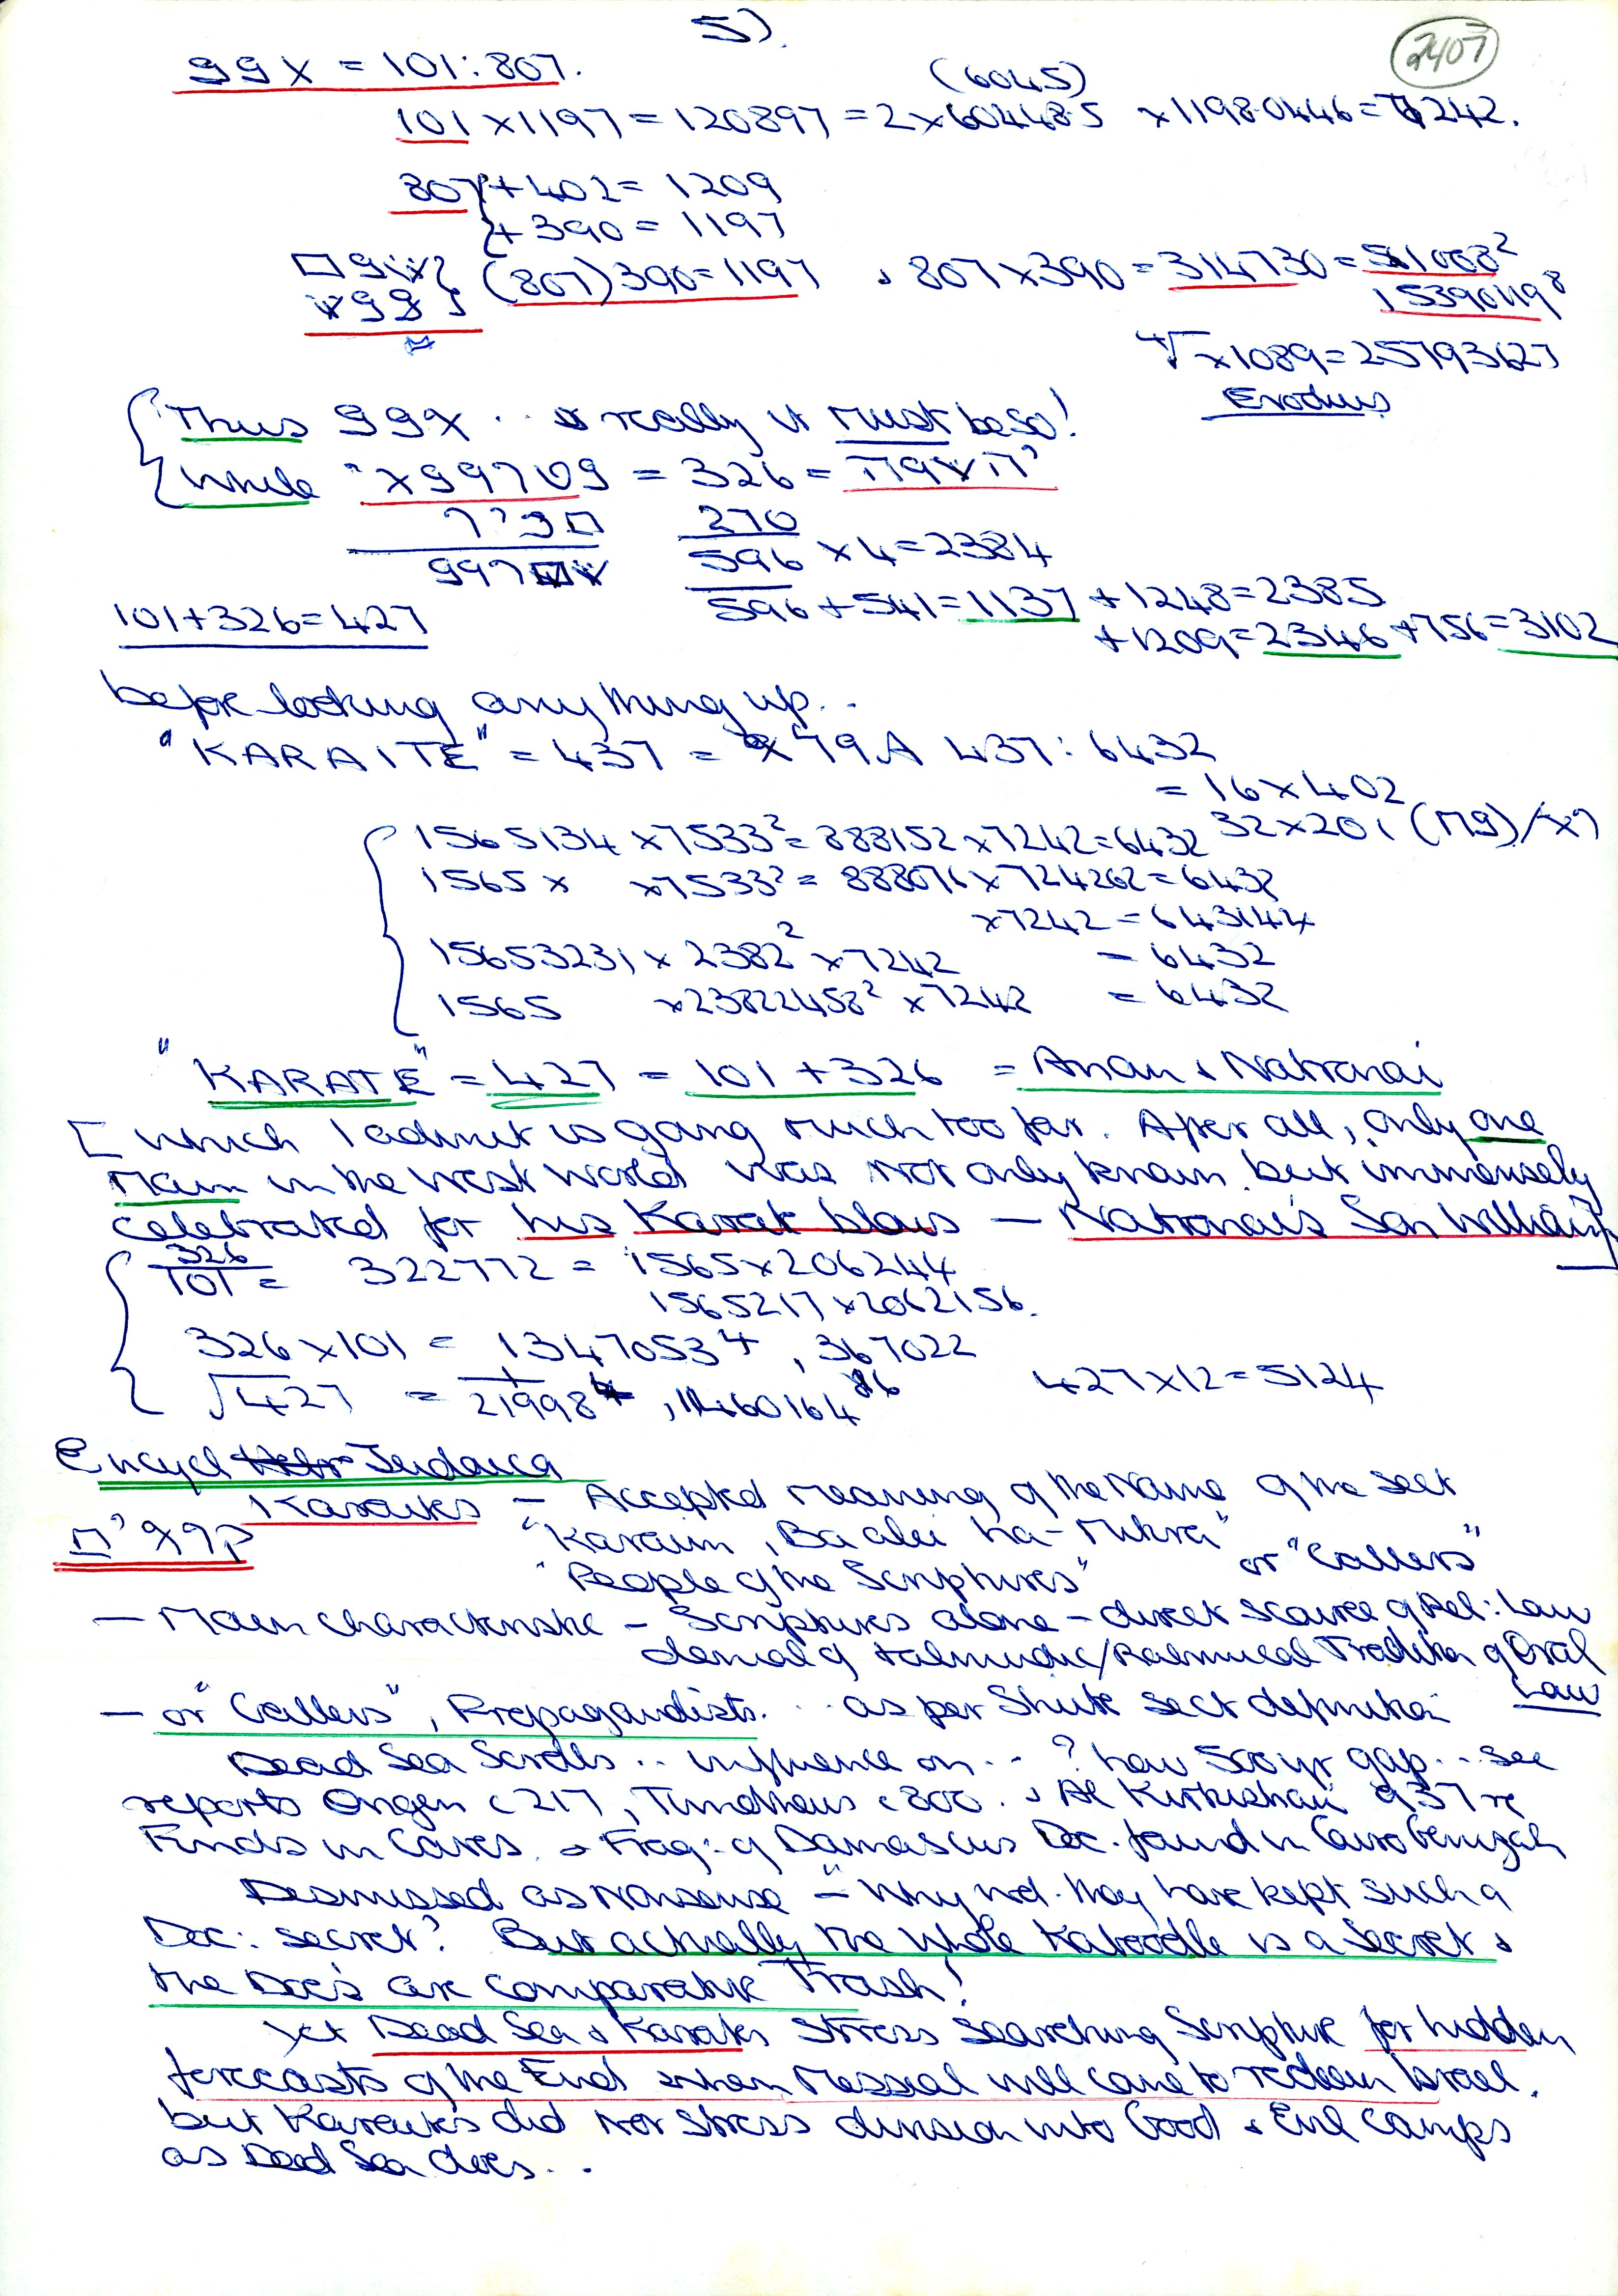 5).
2407
99X = 101:807.
(6045)
101 x 1197 = 120897 = 2 x 604485 x 1198.0446 = 7242.
807 + 402 = 1209
+ 390 = 1197
(807) 390 = 1197 , 807 x 390 = 314730 = 561008²
15390119⁸
⁴√ x 1089 = 25793627
Exodus
Thus 99X .. really it must be so!
While = 326 =
270
596 x 4 = 2384
596 + 541 = 1137 + 1248 = 2385
101 + 326 = 427
+ 1209 = 2346 + 756 = 3102
before looking anything up..
"KARAITE" = 437 = 437 : 6432
= 16 x 402
1565134 x 7533² = 888152 x 7242 = 6432 32 x 201
1565 x x 7533² = 888076 x 724262 = 6432
x 7242 = 643144
15653231 x 2382² x 7242 = 6432
1565 x 23822458² x 7242 = 6432
"KARATE" = 427 = 101 + 326 = Anan & Natronai
[ which I admit is going much too far. After all, only one
Man in the West World was not only known but immensely
celebrated for his Karate blows — Natronai's Son William]
326/101 = 322772 = 1565 x 206244
1565217 x 2062156.
326 x 101 = 1347053⁴ , 367022
√427 = 1/21998⁴ , 11460164¹⁶ 427 x 12 = 5124
Encycl Judaica
Karaites — Accepted meaning of the Name of the sect
קראים "Karaim, Ba'alei ha-Mikra" or "Callers"
"People of the Scriptures"
— Main characteristic — Scriptures alone — direct source of Rel: Law
denial of talmudic/Rabinical Tradition of Oral
Law
— or "Callers", Propagandists... as per Shiite sect definition
Dead Sea Scrolls .. influence on ..? how 500 yr gap.. see
reports Origen c 217, Timotheus c 800. & Al Kirkisani 937 re
Finds in Caves. & Frag: of Damascus Doc. found in Cairo Genizah
Dismissed as nonsense — "Why wd. they have kept such a
Doc: secret? But actually the whole Kaboodle is a Secret &
the Doc's are comparative Trash!
Yet Dead Sea & Karaites stress searching Scripture for hidden
forecasts of the End when Messiah will come to redeem Israel.
but Karaites did not stress division into Good & Evil Camps
as Dead Sea does..